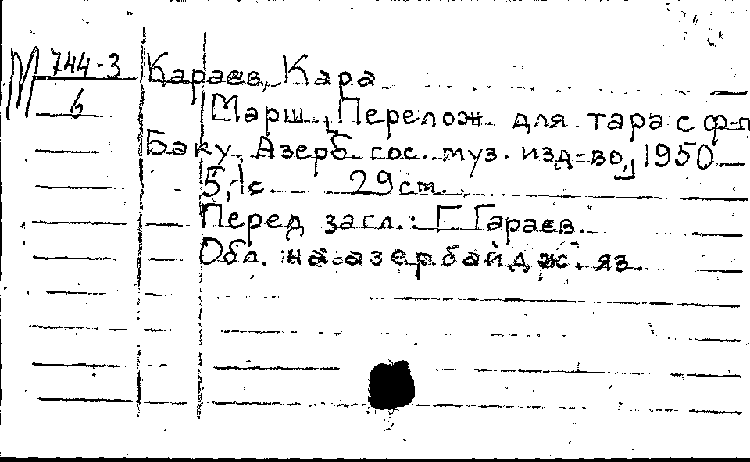 М 744-3
6
Караев, Кара
Марш. Перелож. для тара с ф-п
Баку, Азерб. гос. муз. изд-во, 1950
5,1с 29 см.
Перед загл.: Г. Гараев.
Обл. на азербайдж. яз.